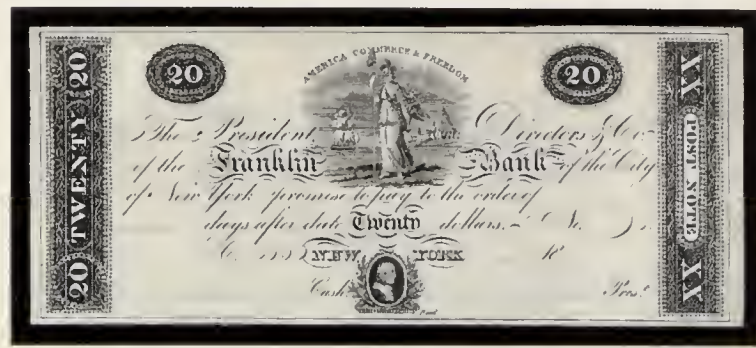 20 TWENTY 20
20
AMERICA COMMERCE & FREEDOM
20
The President, Directors & Co.
of the Franklin Bank of the City
of New York promise to pay to the order of
days after date Twenty dollars.
NEW YORK 18
Cash.r Pres.t
XX POST NOTE XX